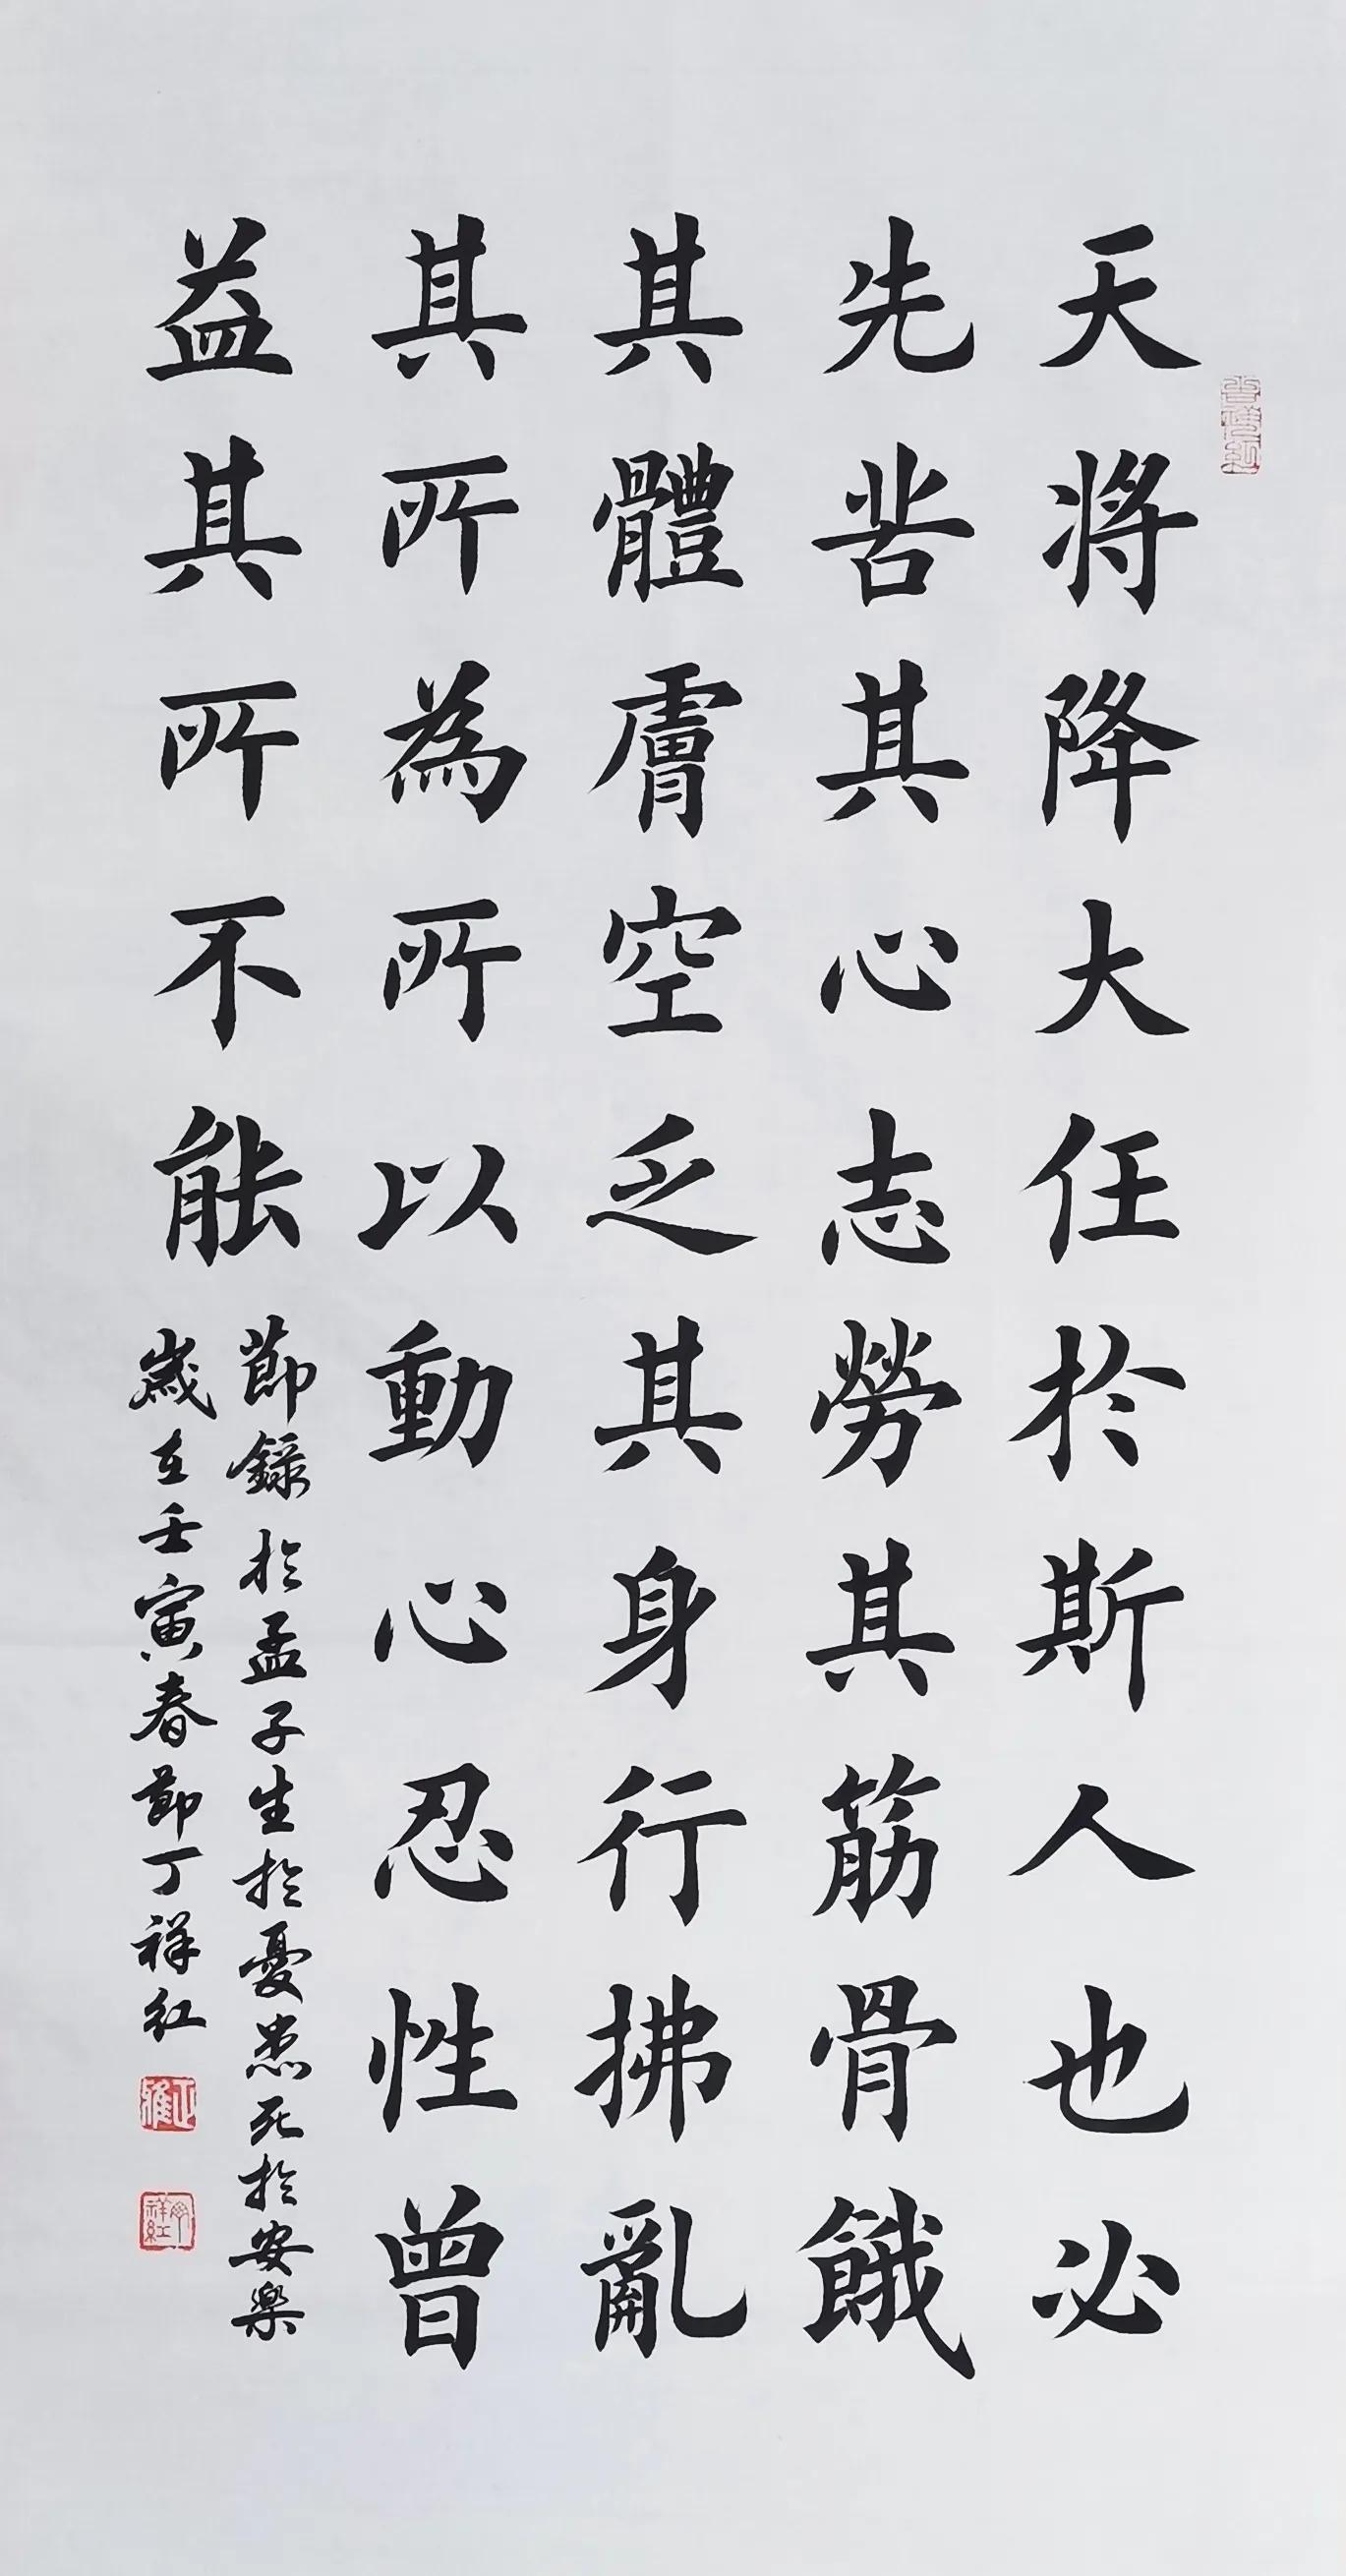 天将降大任於斯人也必
先苦其心志勞其筋骨餓
其體膚空乏其身行拂亂
其所為所以動心忍性曾
益其所不能
節錄於孟子生於憂患死於安樂
歲在壬寅春節丁祥紅